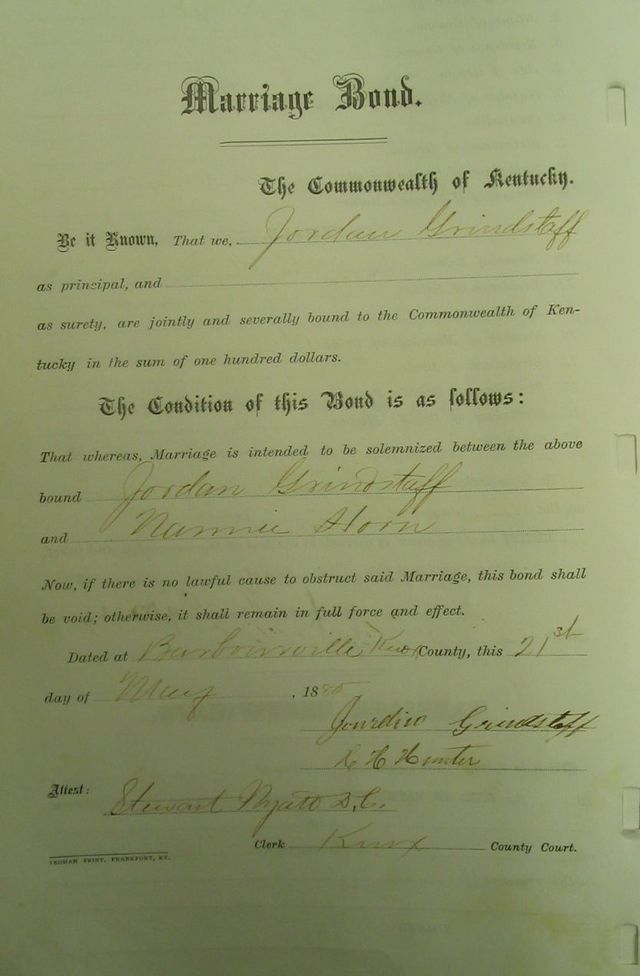 Marriage Bond.
The Commonwealth of Kentucky.
Be it Known, That we, Jordan Grindstaff
as principal, and
as surety, are jointly and severally bound to the Commonwealth of Ken-
tucky in the sum of one hundred dollars.
The Condition of this Bond is as follows:
That whereas, Marriage is intended to be solemnized between the above
bound Jordan Grindstaff
and Nannie Horn
Now, if there is no lawful cause to obstruct said Marriage, this bond shall
be void; otherwise, it shall remain in full force and effect.
Dated at Barbourville, Knox County, this 21st
day of May, 188
Grindstaff
H Hunter
Attest:
Stewart Wyatt D.C.
Clerk Knox County Court.
YEOMAN PRINT, FRANKFORT, KY.